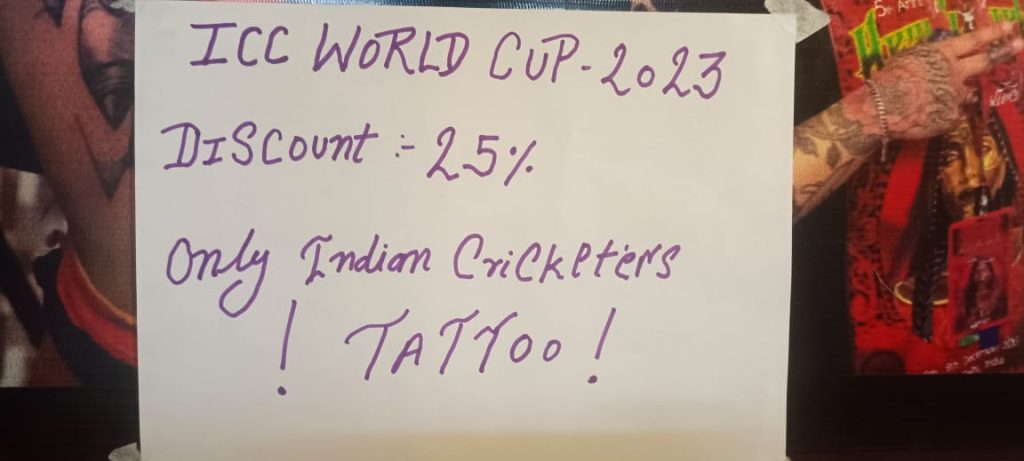 ICC WORLD CUP-2023
DISCOUNT :- 25%
Only Indian Cricketers
! TATTOO !